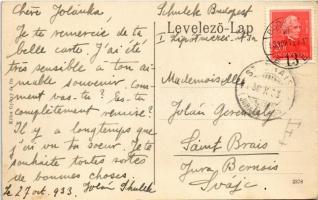 Chère Jolánka,
Je te remercie de ta
belle carte. J'ai été
très sensible à ton ai-
mable souvenir. Com-
ment vas-tu? Es-tu
complètement remise?
Il y a longtemps que
j'ai vu ta soeur. Je te
souhaite toutes sortes
de bonnes choses
le 27 oct. 933. Jolán Schulek
Schulek Budapest
Levelező-Lap
I
Mademoiselle
Jolán Gerenday
Saint Brais
Jura Bernois
Svájc